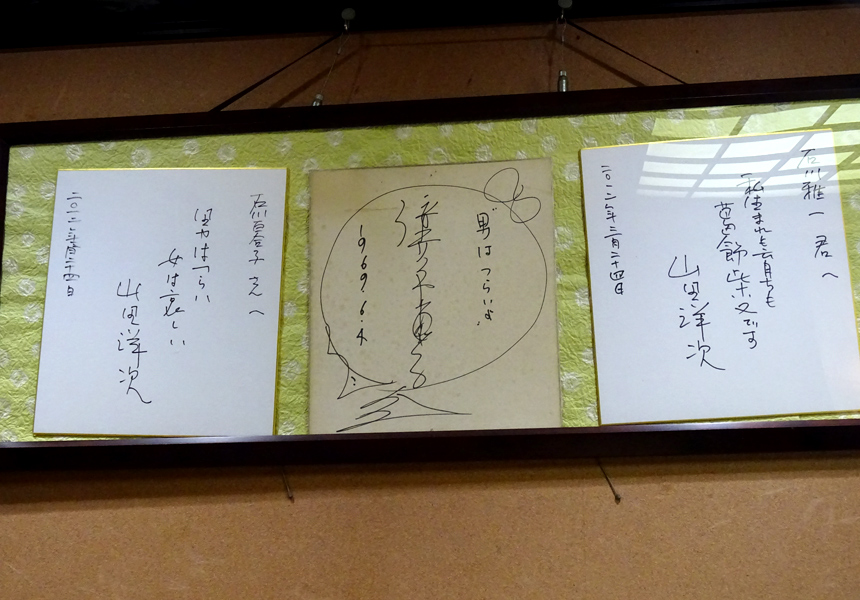 石川雅一君へ
私生まれも育ちも
葛飾柴又です
山田洋次
二〇一二年二月二十四日
男はつらいよ
1969.6.4
石川百合子さんへ
男はつらい
女は哀しい
山田洋次
二〇一二年二月二十四日